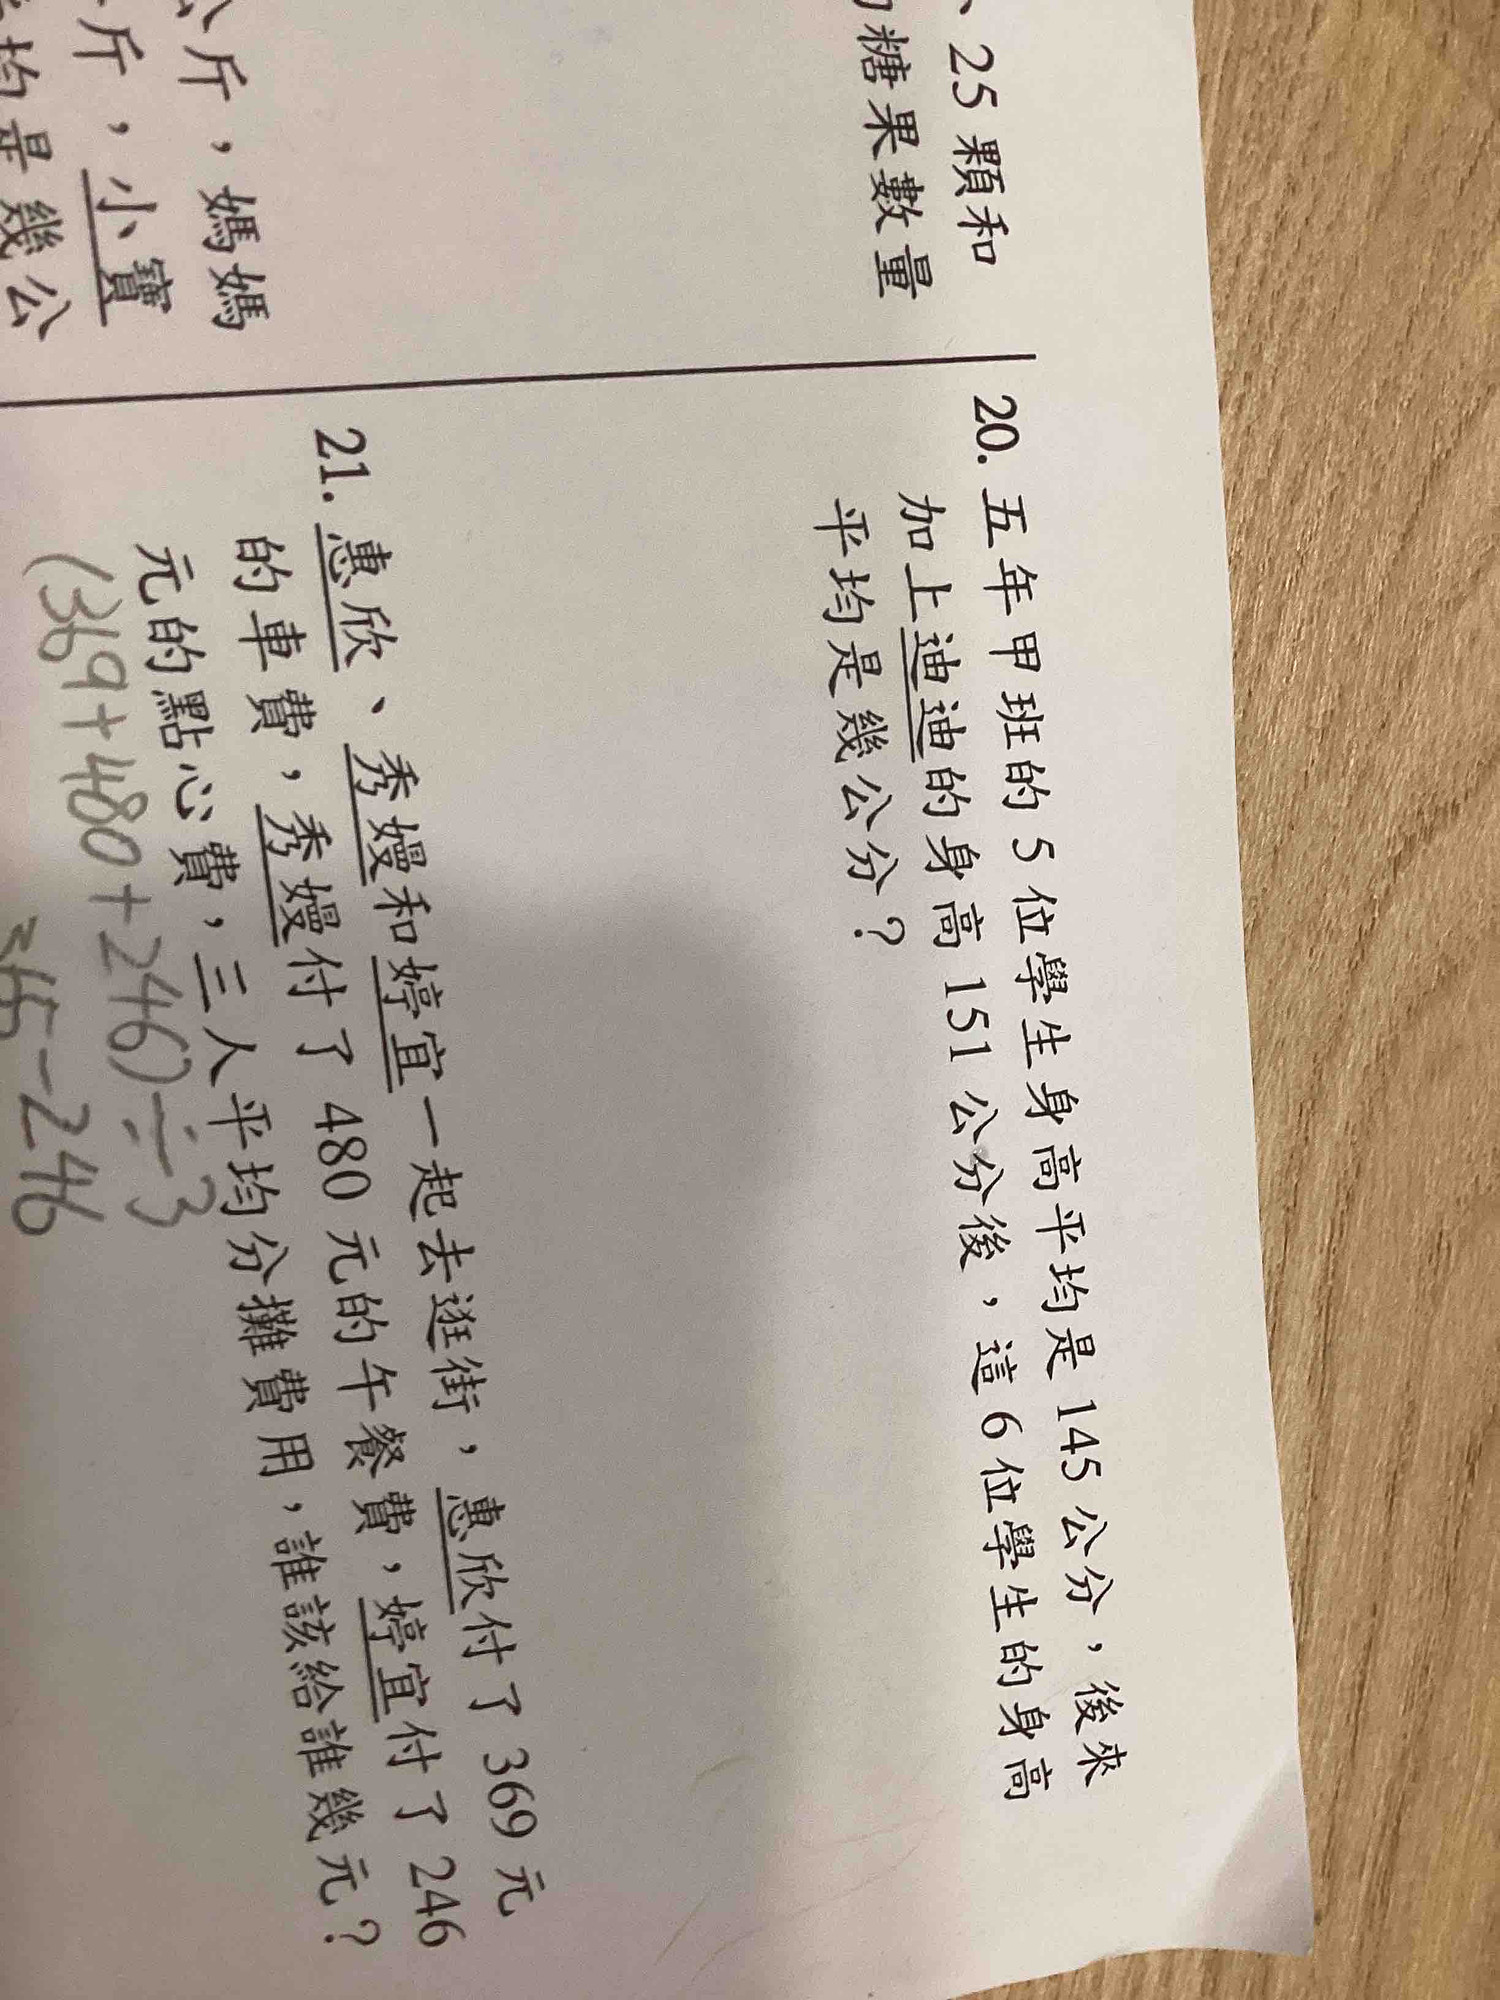 、25顆和
糖果數量
公斤，媽媽
斤，小寶
均是幾公
20. 五年甲班的5位學生身高平均是145公分，後來
加上迪迪的身高151公分後，這6位學生的身高
平均是幾公分？
21. 惠欣、秀嫚和婷宜一起去逛街，惠欣付了369元
的車費，秀嫚付了480元的午餐費，婷宜付了246
元的點心費，三人平均分攤費用，誰該給誰幾元？
(369+480+246)÷3
-246